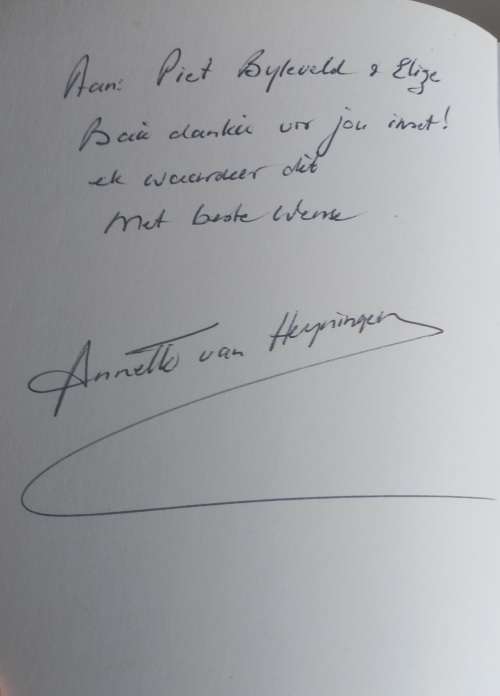 Aan: Piet Byleveld & Elize
Baie dankie vir jou inset!
ek waardeer dit
Met beste Wense
Annette van Heyningen